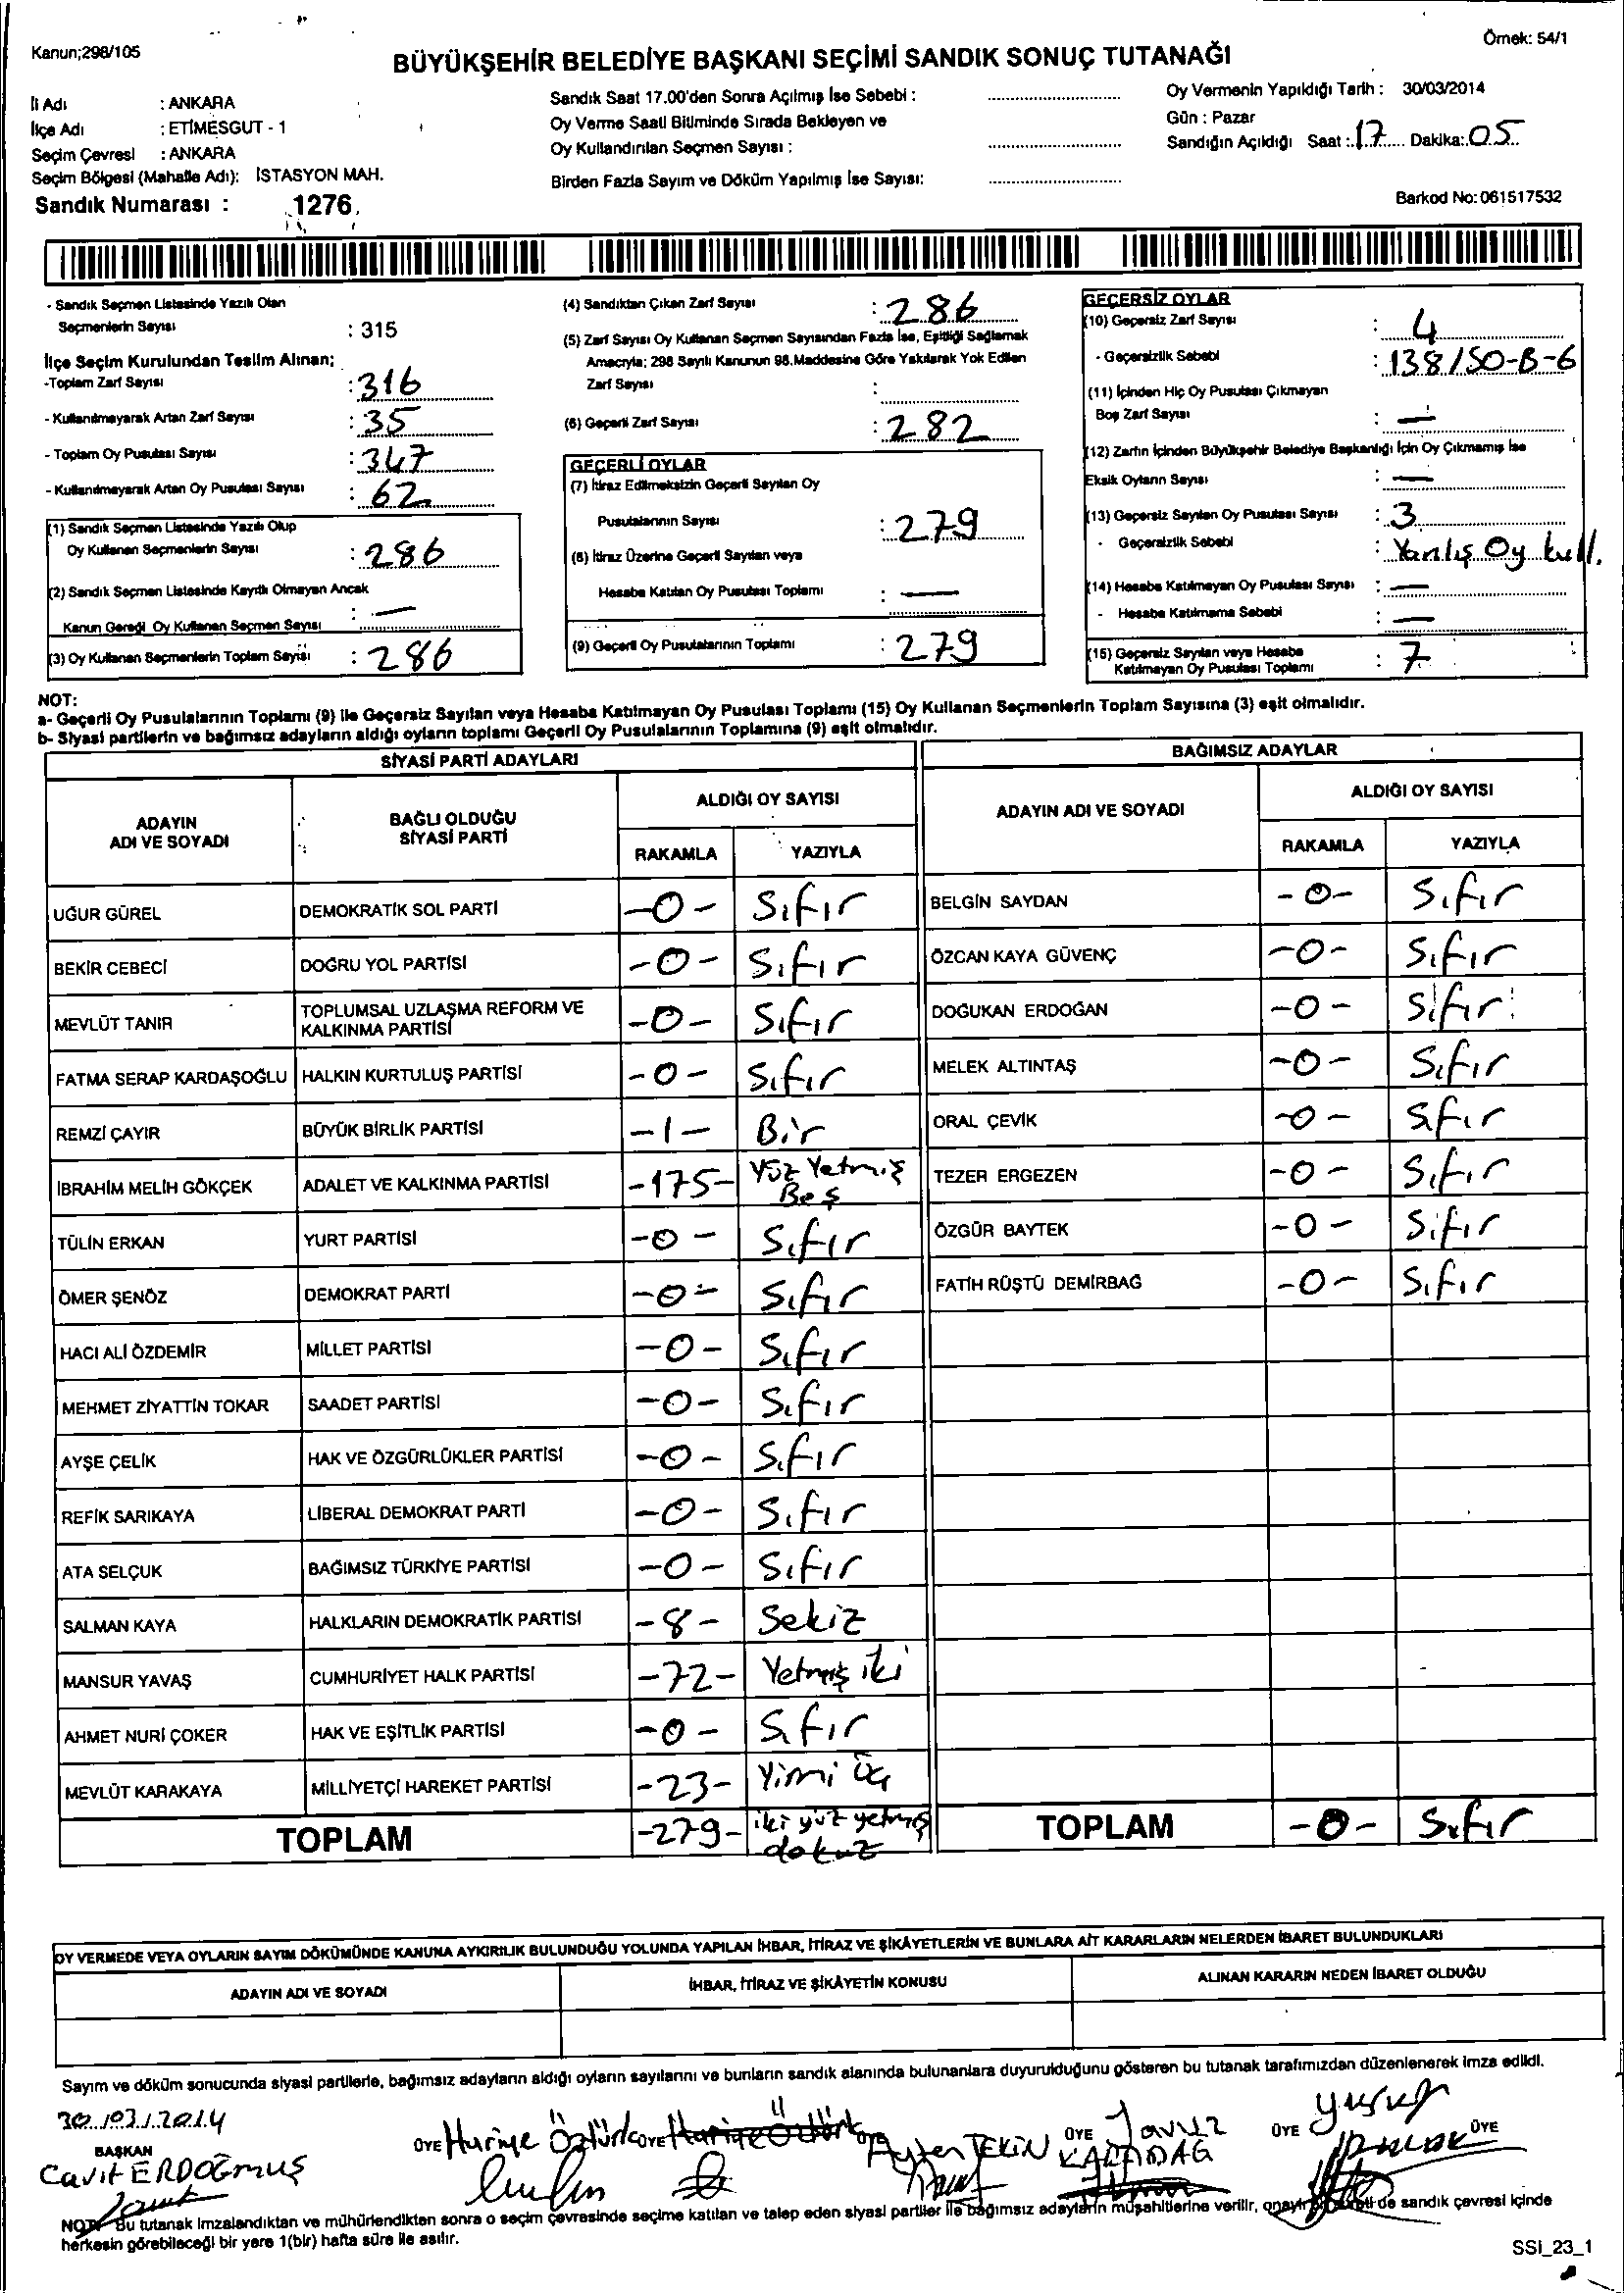 Kanun;298/105
Örnek: 54/1
BÜYÜKŞEHİR BELEDİYE BAŞKANI SEÇİMİ SANDIK SONUÇ TUTANAĞI
İl Adı : ANKARA
İlçe Adı : ETİMESGUT - 1
Seçim Çevresi : ANKARA
Seçim Bölgesi (Mahalle Adı): İSTASYON MAH.
Sandık Numarası : 1276
Sandık Saat 17.00'den Sonra Açılmış İse Sebebi :
Oy Verme Saati Bitiminde Sırada Bekleyen ve
Oy Kullandırılan Seçmen Sayısı :
Birden Fazla Sayım ve Döküm Yapılmış İse Sayısı:
Oy Vermenin Yapıldığı Tarih : 30/03/2014
Gün : Pazar
Sandığın Açıldığı Saat : 17 Dakika: 05
Barkod No: 061517532
- Sandık Seçmen Listesinde Yazılı Olan
Seçmenlerin Sayısı : 315
İlçe Seçim Kurulundan Teslim Alınan;
-Toplam Zarf Sayısı : 316
- Kullanılmayarak Artan Zarf Sayısı : 35
- Toplam Oy Pusulası Sayısı : 347
- Kullanılmayarak Artan Oy Pusulası Sayısı : 62
(1) Sandık Seçmen Listesinde Yazılı Olup
Oy Kullanan Seçmenlerin Sayısı : 286
(2) Sandık Seçmen Listesinde Kayıtlı Olmayan Ancak
Kanun Gereği Oy Kullanan Seçmen Sayısı : —
(3) Oy Kullanan Seçmenlerin Toplam Sayısı : 286
(4) Sandıktan Çıkan Zarf Sayısı : 286
(5) Zarf Sayısı Oy Kullanan Seçmen Sayısından Fazla İse, Eşitliği Sağlamak
Amacıyla; 298 Sayılı Kanunun 98.Maddesine Göre Yakılarak Yok Edilen
Zarf Sayısı :
(6) Geçerli Zarf Sayısı : 282
GEÇERLİ OYLAR
(7) İtiraz Edilmeksizin Geçerli Sayılan Oy
Pusulalarının Sayısı : 279
(8) İtiraz Üzerine Geçerli Sayılan veya
Hesaba Katılan Oy Pusulası Toplamı : —
(9) Geçerli Oy Pusulalarının Toplamı : 279
GEÇERSİZ OYLAR
(10) Geçersiz Zarf Sayısı : 4
- Geçersizlik Sebebi : 138/50-B-6
(11) İçinden Hiç Oy Pusulası Çıkmayan
Boş Zarf Sayısı : —
(12) Zarfın İçinden Büyükşehir Belediye Başkanlığı İçin Oy Çıkmamış İse
Eksik Oyların Sayısı : —
(13) Geçersiz Sayılan Oy Pusulası Sayısı : 3
- Geçersizlik Sebebi : Yanlış Oy kull.
(14) Hesaba Katılmayan Oy Pusulası Sayısı : —
- Hesaba Katılmama Sebebi : —
(15) Geçersiz Sayılan veya Hesaba
Katılmayan Oy Pusulası Toplamı : 7
NOT:
a- Geçerli Oy Pusulalarının Toplamı (9) ile Geçersiz Sayılan veya Hesaba Katılmayan Oy Pusulası Toplamı (15) Oy Kullanan Seçmenlerin Toplam Sayısına (3) eşit olmalıdır.
b- Siyasi partilerin ve bağımsız adayların aldığı oyların toplamı Geçerli Oy Pusulalarının Toplamına (9) eşit olmalıdır.
SİYASİ PARTİ ADAYLARI
ADAYIN ADI VE SOYADI BAĞLI OLDUĞU SİYASİ PARTİ ALDIĞI OY SAYISI
RAKAMLA YAZIYLA
UĞUR GÜREL DEMOKRATİK SOL PARTİ -0- Sıfır
BEKİR CEBECİ DOĞRU YOL PARTİSİ -0- Sıfır
MEVLÜT TANIR TOPLUMSAL UZLAŞMA REFORM VE KALKINMA PARTİSİ -0- Sıfır
FATMA SERAP KARDAŞOĞLU HALKIN KURTULUŞ PARTİSİ -0- Sıfır
REMZİ ÇAYIR BÜYÜK BİRLİK PARTİSİ -1- Bir
İBRAHİM MELİH GÖKÇEK ADALET VE KALKINMA PARTİSİ -175- Yüz Yetmiş Beş
TÜLİN ERKAN YURT PARTİSİ -0- Sıfır
ÖMER ŞENÖZ DEMOKRAT PARTİ -0- Sıfır
HACI ALİ ÖZDEMİR MİLLET PARTİSİ -0- Sıfır
MEHMET ZİYATTİN TOKAR SAADET PARTİSİ -0- Sıfır
AYŞE ÇELİK HAK VE ÖZGÜRLÜKLER PARTİSİ -0- Sıfır
REFİK SARIKAYA LİBERAL DEMOKRAT PARTİ -0- Sıfır
ATA SELÇUK BAĞIMSIZ TÜRKİYE PARTİSİ -0- Sıfır
SALMAN KAYA HALKLARIN DEMOKRATİK PARTİSİ -8- Sekiz
MANSUR YAVAŞ CUMHURİYET HALK PARTİSİ -72- Yetmiş iki
AHMET NURİ ÇOKER HAK VE EŞİTLİK PARTİSİ -0- Sıfır
MEVLÜT KARAKAYA MİLLİYETÇİ HAREKET PARTİSİ -23- Yirmi üç
TOPLAM -279- iki yüz yetmiş dokuz
BAĞIMSIZ ADAYLAR
ADAYIN ADI VE SOYADI ALDIĞI OY SAYISI
RAKAMLA YAZIYLA
BELGİN SAYDAN -0- Sıfır
ÖZCAN KAYA GÜVENÇ -0- Sıfır
DOĞUKAN ERDOĞAN -0- Sıfır
MELEK ALTINTAŞ -0- Sıfır
ORAL ÇEVİK -0- Sıfır
TEZER ERGEZEN -0- Sıfır
ÖZGÜR BAYTEK -0- Sıfır
FATİH RÜŞTÜ DEMİRBAĞ -0- Sıfır
TOPLAM -0- Sıfır
OY VERMEDE VEYA OYLARIN SAYIM DÖKÜMÜNDE KANUNA AYKIRILIK BULUNDUĞU YOLUNDA YAPILAN İHBAR, İTİRAZ VE ŞİKÂYETLERİN VE BUNLARA AİT KARARLARIN NELERDEN İBARET BULUNDUKLARI
ADAYIN ADI VE SOYADI İHBAR, İTİRAZ VE ŞİKÂYETİN KONUSU ALINAN KARARIN NEDEN İBARET OLDUĞU
Sayım ve döküm sonucunda siyasi partilerle, bağımsız adayların aldığı oyların sayılarını ve bunların sandık alanında bulunanlara duyurulduğunu gösteren bu tutanak tarafımızdan düzenlenerek imza edildi.
30/03/2014
BAŞKAN ÜYE ÜYE ÜYE ÜYE ÜYE ÜYE
Cavit ERDOĞMUŞ
Huriye Öztürk
Huriye Öztürk
Ayten TEKİN
Yavuz KARADAĞ
Yusuf
NOT: Bu tutanak imzalandıktan ve mühürlendikten sonra o seçim çevresinde seçime katılan ve talep eden siyasi partiler ile bağımsız adayların müşahitlerine verilir, de sandık çevresi içinde
herkesin görebileceği bir yere 1(bir) hafta süre ile asılır.
SSI_23_1